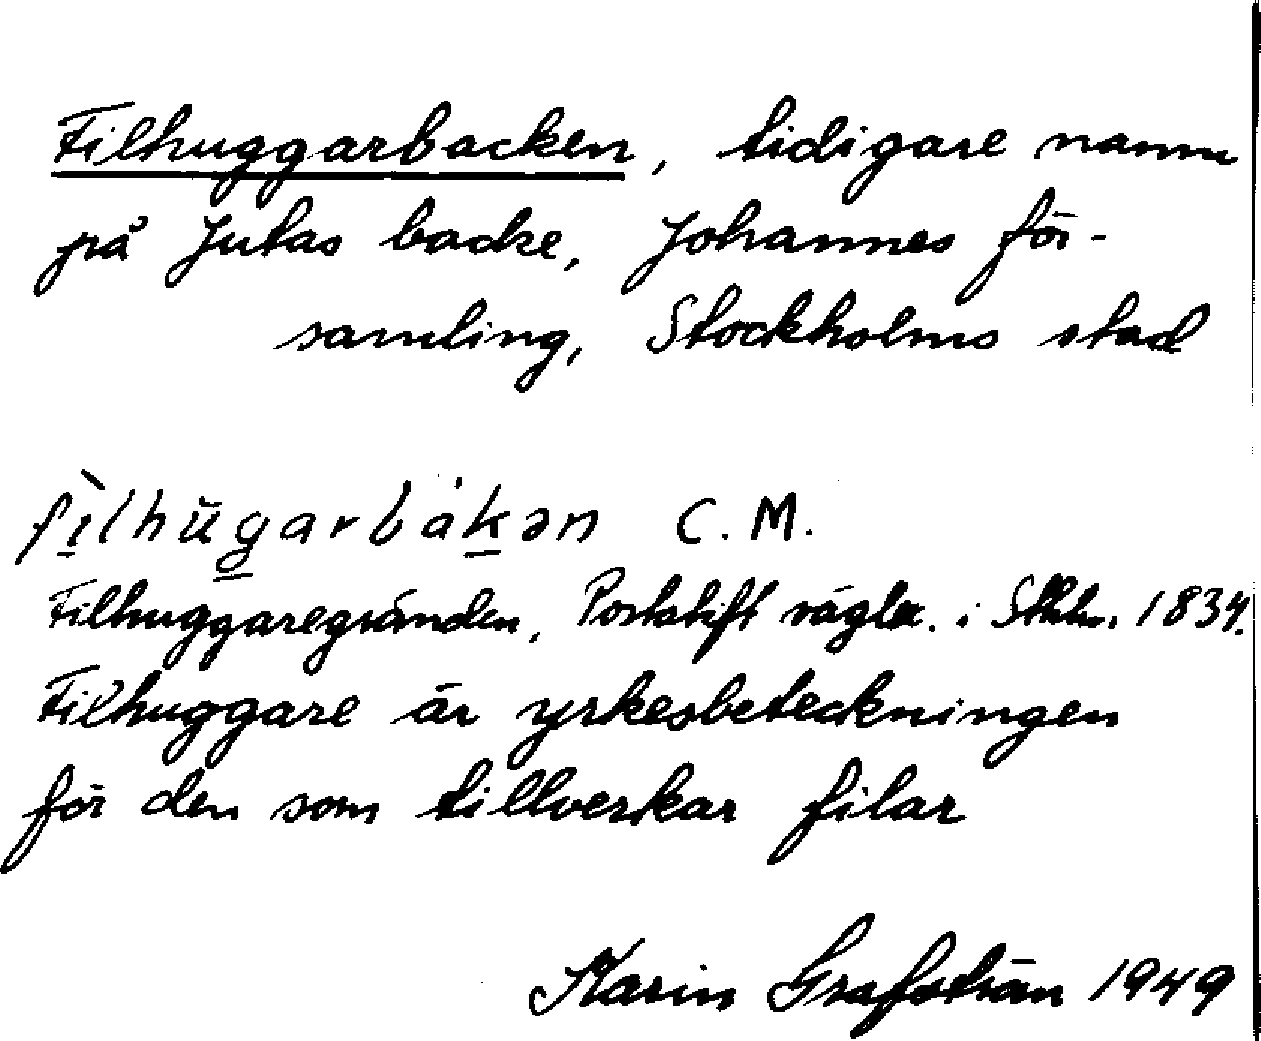 Filhuggarbacken, tidigare namn
på Jutas backe, Johannes för-
samling, Stockholms stad
fìlhŭgarbákən C.M.
Filhuggaregränden, Portatift vägln. i Sthlm. 1834.
Filhuggare är yrkesbeteckningen
för den som tillverkar filar
Karin Grafström 1949